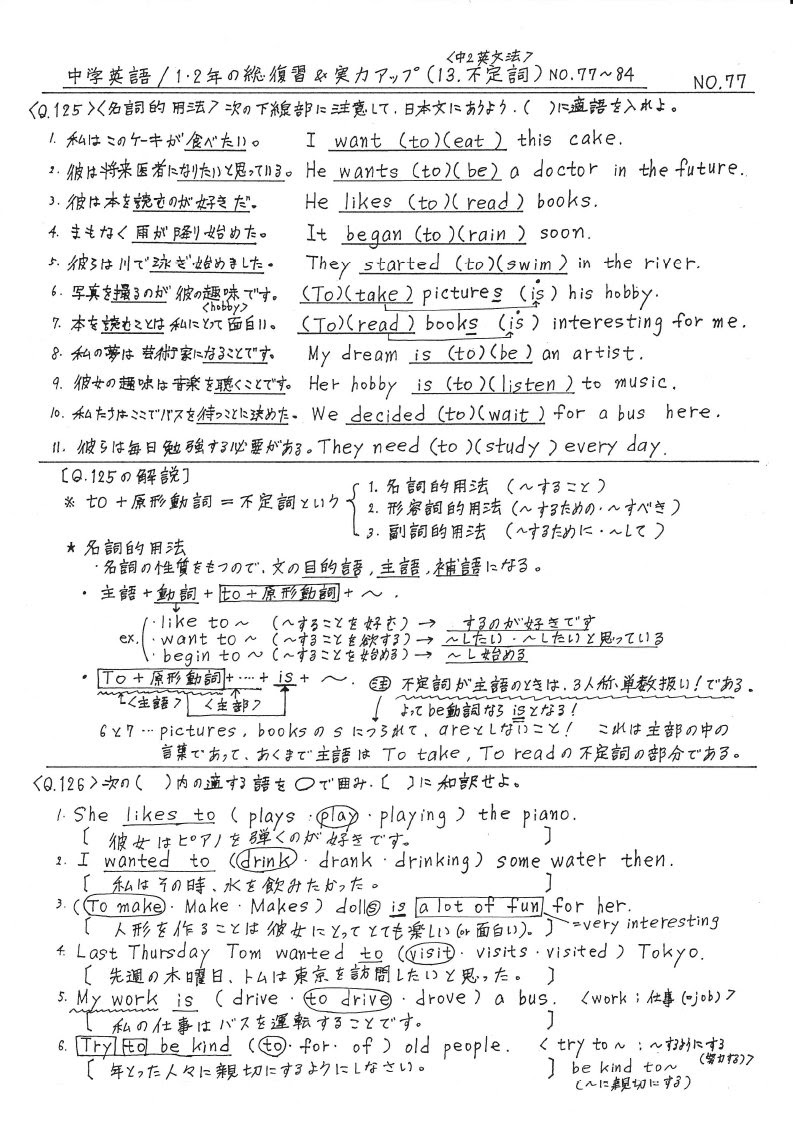 〈中2英文法〉
中学英語/1・2年の総復習&実力アップ(13.不定詞) NO.77~84 NO.77
〈Q.125〉〈名詞的用法〉次の下線部に注意して、日本文にあうよう、( )に適語を入れよ。
1. 私はこのケーキが食べたい。 I want (to)(eat) this cake.
2. 彼は将来医者になりたいと思っている。 He wants (to)(be) a doctor in the future.
3. 彼は本を読むのが好きだ。 He likes (to)(read) books.
4. まもなく雨が降り始めた。 It began (to)(rain) soon.
5. 彼らは川で泳ぎ始めました。 They started (to)(swim) in the river.
6. 写真を撮るのが彼の趣味です。 (To)(take) pictures (is) his hobby.
〈hobby〉
7. 本を読むことは私にとって面白い。 (To)(read) books (is) interesting for me.
8. 私の夢は芸術家になることです。 My dream is (to)(be) an artist.
9. 彼女の趣味は音楽を聴くことです。 Her hobby is (to)(listen) to music.
10. 私たちはここでバスを待つことに決めた。 We decided (to)(wait) for a bus here.
11. 彼らは毎日勉強する必要がある。 They need (to)(study) every day.
[Q.125の解説]
※ to+原形動詞=不定詞という
1. 名詞的用法 (~すること)
2. 形容詞的用法 (~するための・~すべき)
3. 副詞的用法 (~するために・~して)
* 名詞的用法
・名詞の性質をもつので、文の目的語, 主語, 補語になる。
・主語+動詞+to+原形動詞+~.
ex. ・like to~ (~することを好む) → するのが好きです
・want to~ (~することを欲する) → ~したい・~したいと思っている
・begin to~ (~することを始める) → ~し始める
・To+原形動詞+‥‥+is+~. 注 不定詞が主語のときは、3人称・単数扱い!である。
〈主語〉 〈主部〉 よってbe動詞なら is となる!
6と7…pictures, books の s につられて、are としないこと! これは主部の中の
言葉であって、あくまで主語は To take, To read の不定詞の部分である。
〈Q.126〉次の( )内の適する語を○で囲み、[ ]に和訳せよ。
1. She likes to (plays・play・playing) the piano.
[ 彼女はピアノを弾くのが好きです。 ]
2. I wanted to (drink・drank・drinking) some water then.
[ 私はその時、水を飲みたかった。 ]
3. (To make・Make・Makes) dolls is a lot of fun for her.
[ 人形を作ることは彼女にとってとても楽しい(or 面白い)。 ] =very interesting
4. Last Thursday Tom wanted to (visit・visits・visited) Tokyo.
[ 先週の木曜日、トムは東京を訪問したいと思った。 ]
5. My work is (drive・to drive・drove) a bus. 〈work ; 仕事 (=job)〉
[ 私の仕事はバスを運転することです。 ]
6. Try to be kind (to・for・of) old people. 〈try to~ ; ~するようにする
(努力する)〉
[ 年とった人々に親切にするようにしなさい。 ] be kind to~
(~に親切にする)